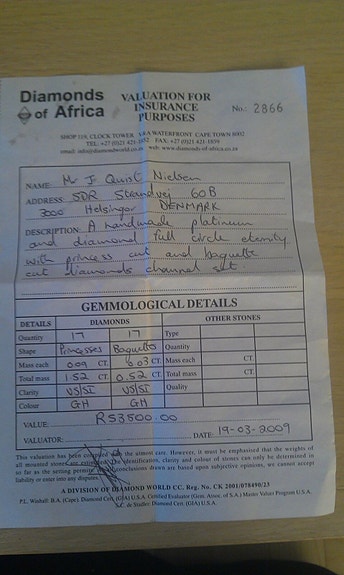 Diamonds of Africa
VALUATION FOR
INSURANCE
PURPOSES
No.: 2866
SHOP 119, CLOCK TOWER V&A WATERFRONT CAPE TOWN 8002
TEL: +27 (0)21 421- FAX: +27 (0)21 421-1859
email: info@diamondworld.co.za web: www.diamonds-of-africa.co.za
NAME: Mr J Quist Nielsen
ADDRESS: SDR Strandvej 60B
3000 Helsingor DENMARK
DESCRIPTION: A handmade platinum
and diamond full circle eternity
with princess cut and baguette
cut diamonds channel set
GEMMOLOGICAL DETAILS
DETAILS DIAMONDS OTHER STONES
Quantity 17 17 Type
Shape Princesses Baguettes Quantity
Mass each 0.09 CT. 0.03 CT. Mass each CT. CT.
Total mass 1.52 CT. 0.52 CT. Total mass CT. CT.
Clarity VS/SI VS/SI Quality
Colour GH GH
VALUE: R53500.00
VALUATOR: DATE: 19-03-2009
This valuation has been with the utmost care. However, it must be emphasised that the weights of
all mounted stones are estimated. The identification, clarity and colour of stones can only be determined in
so far as the setting permits. conclusions drawn are based upon subjective opinions, we cannot accept
liability or enter into any disputes.
A DIVISION OF DIAMOND WORLD CC. Reg. No. CK 2001/078490/23
P.L. Winhall: B.A. (Cape). Diamond Cert. (GIA) U.S.A. Certified Evaluator (Gem. Assoc. of S.A.) Master Valuer Program U.S.A.
C. de Stadler: Diamond Cert. (GIA) U.S.A.